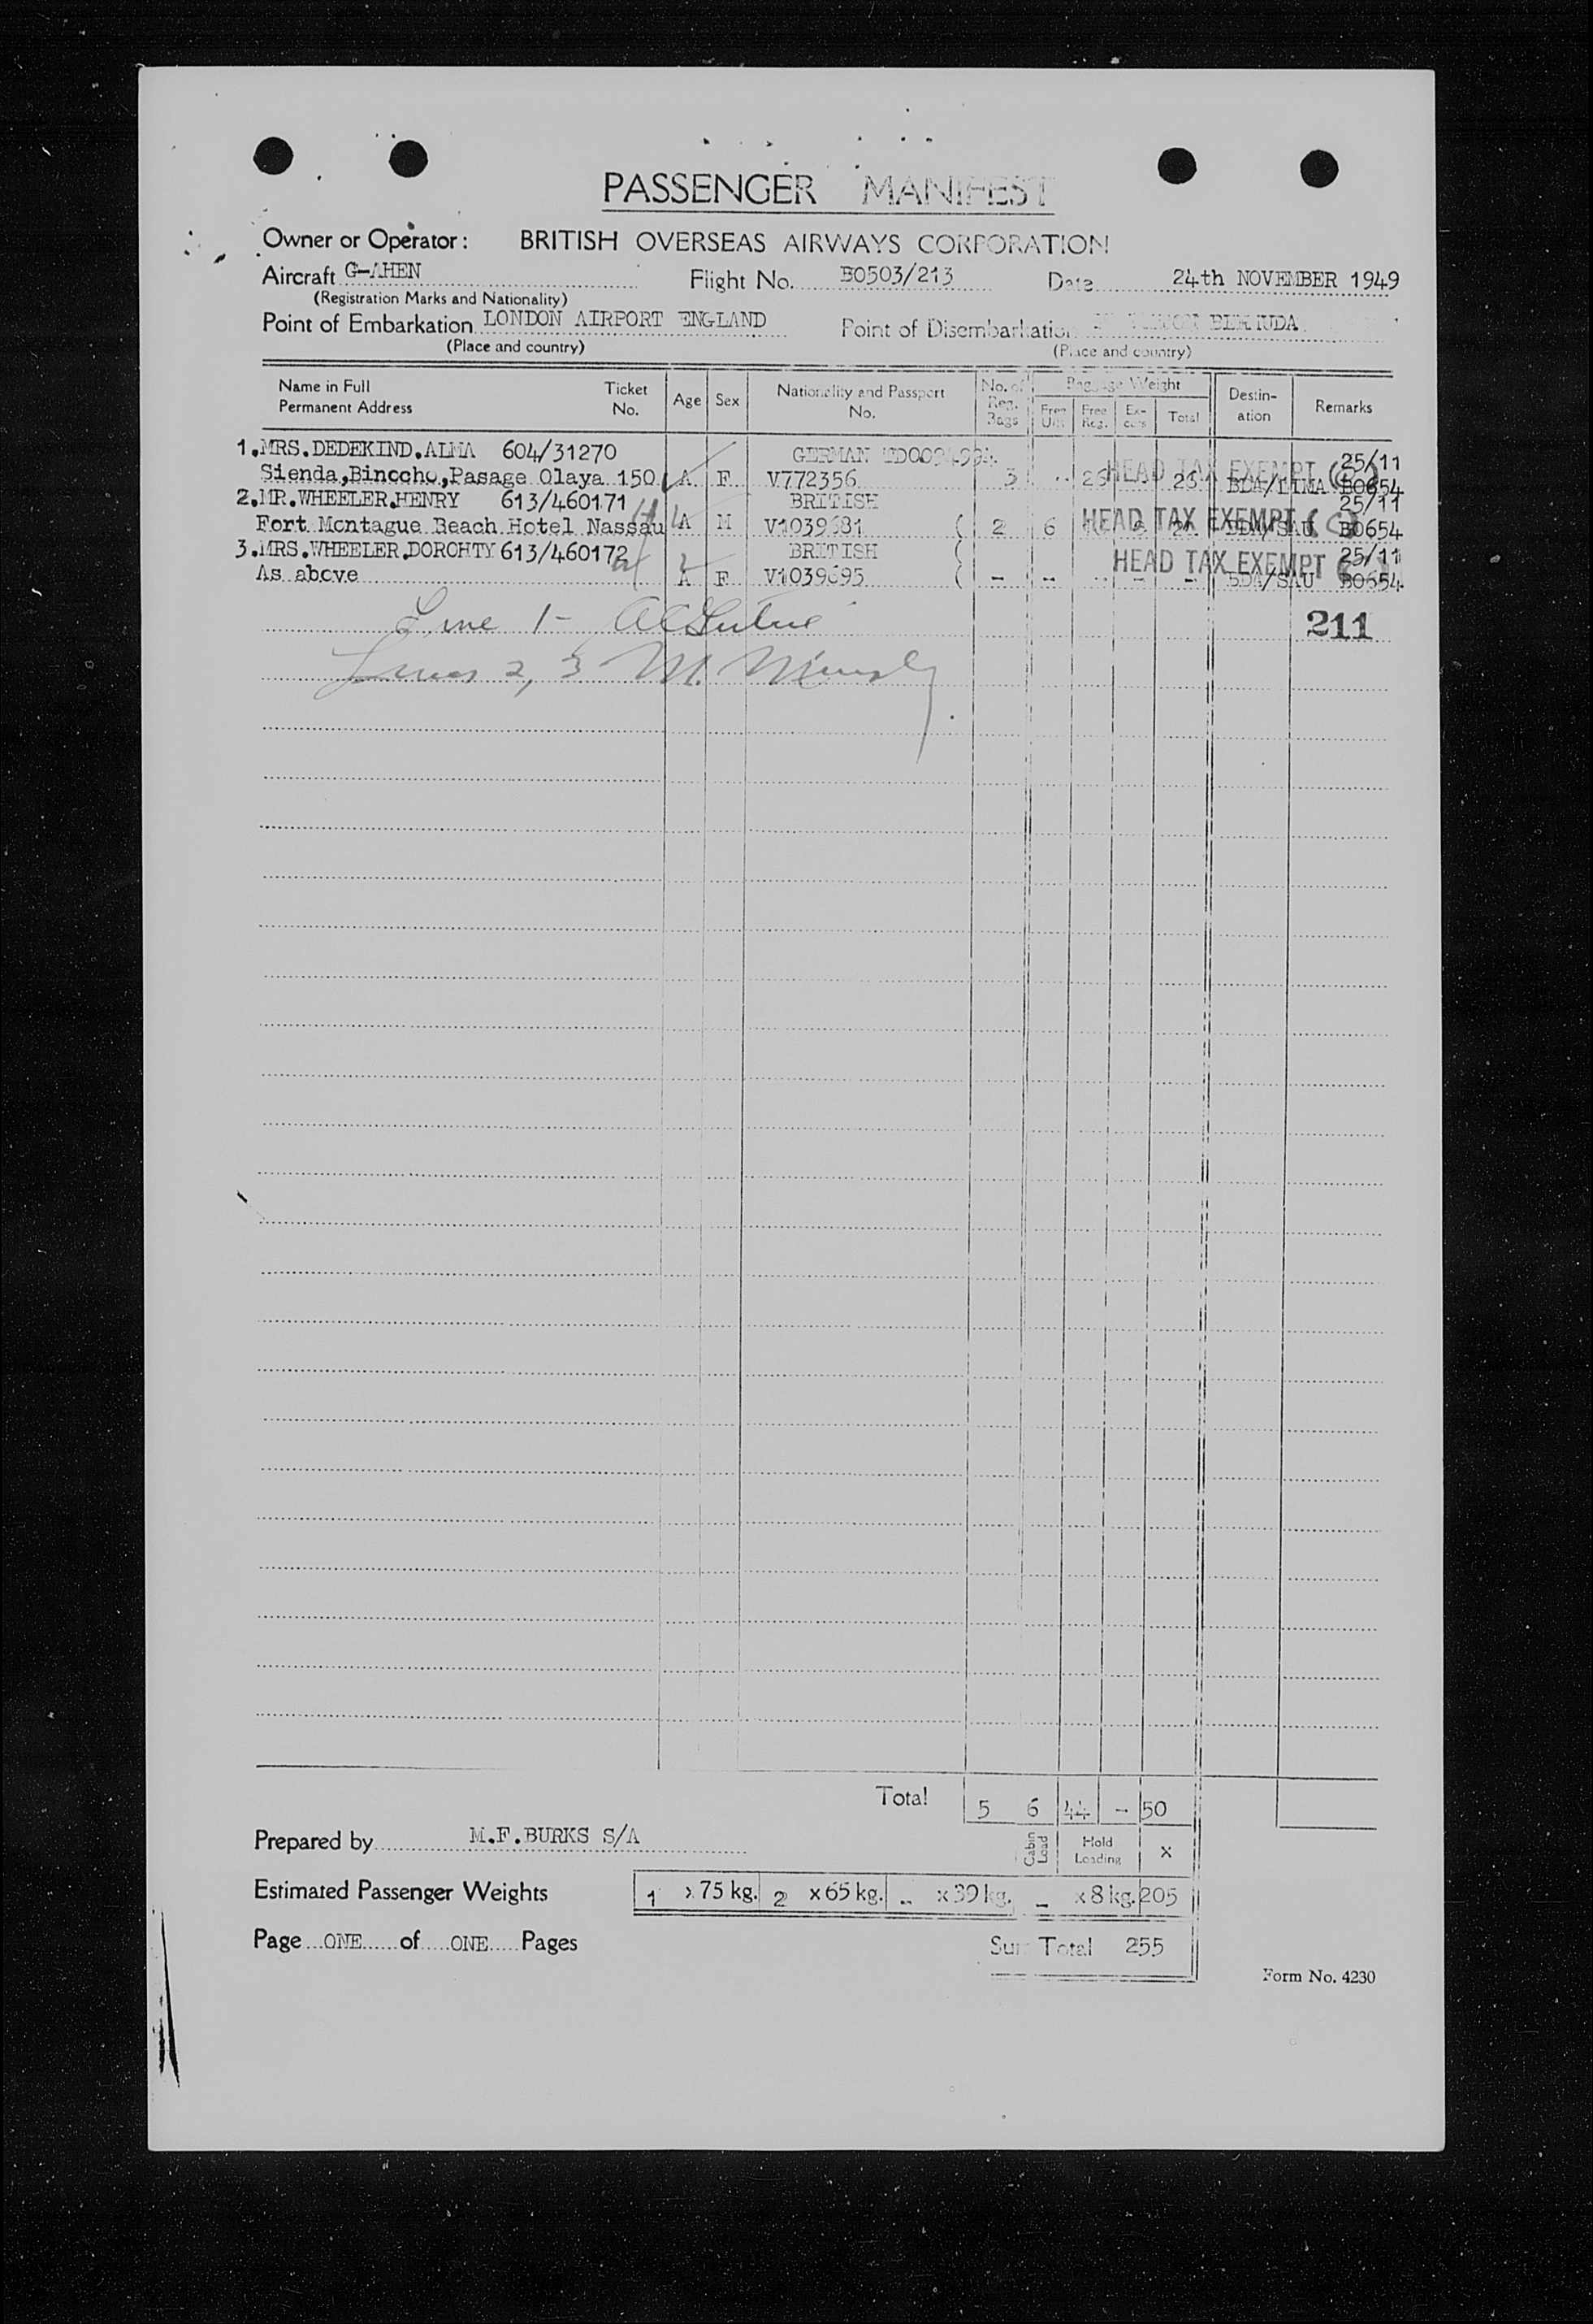 PASSENGER MANIFEST
Owner or Operator: BRITISH OVERSEAS AIRWAYS CORPORATION
Aircraft G-AHEN Flight No. BO503/213 Date 24th NOVEMBER 1949
(Registration Marks and Nationality)
Point of Embarkation LONDON AIRPORT ENGLAND Point of Disembarkation BERMUDA
(Place and country) (Place and country)
Name in Full Ticket Age Sex Nationality and Passport No. of Baggage Weight Destin- Remarks
Permanent Address No. No. Reg. Bags Free Free Reg. Ex- cess Total ation
1. MRS. DEDEKIND. ALMA 604/31270 GERMAN HEAD TAX EXEMPT 25/11
Sienda, Binocho, Pasage Olaya 150 A F V772356 3 - 26 - 26 BDA/LIMA BO654
2. MR. WHEELER. HENRY 613/460171 BRITISH 25/11
Fort Montague Beach Hotel Nassau A M ( 2 6 HEAD TAX EXEMPT BDA/SAU BO654
3. MRS. WHEELER. DOROHTY 613/460172 BRITISH ( HEAD TAX EXEMPT 25/11
As above A F V1039695 ( - - - - - BDA/SAU BO654
Line 1- 211
Lines 2, 3 M.
Total 5 6 44 - 50
Prepared by M.F. BURKS S/A Cabin Load Hold Loading x
Estimated Passenger Weights 1 x 75 kg. 2 x 65 kg. - x 39 kg. - x 8 kg. 205
Page ONE of ONE Pages Sum Total 255
Form No. 4230